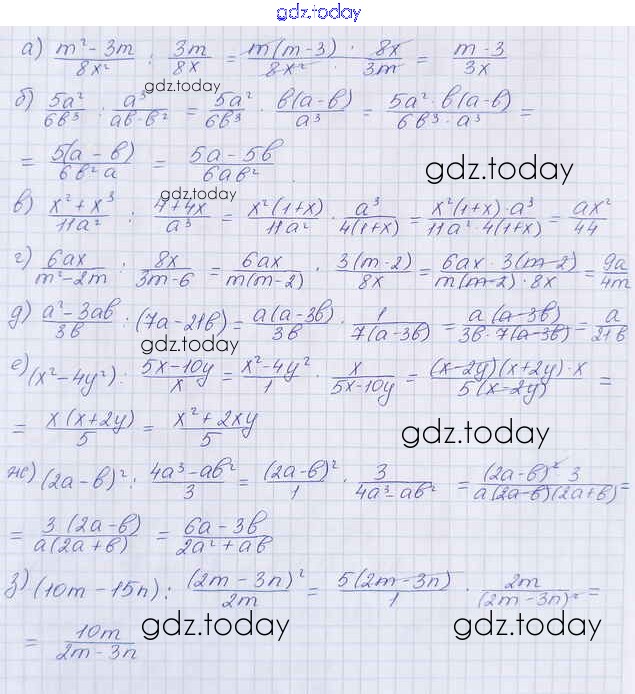 gdz.today
а) (m² - 3m)/(8x²) : (3m)/(8x) = (m(m-3) · 8x)/(8x² · 3m) = (m-3)/(3x)
gdz.today
б) (5a²)/(6b³) : (a³)/(ab-b²) = (5a²)/(6b³) · (b(a-b))/(a³) = (5a² · b(a-b))/(6b³ · a³) =
= (5(a-b))/(6b²a) = (5a-5b)/(6ab²)
gdz.today
gdz.today
в) (x²+x³)/(11a²) : (4+4x)/(a³) = (x²(1+x))/(11a²) · (a³)/(4(1+x)) = (x²(1+x)·a³)/(11a²·4(1+x)) = (ax²)/(44)
г) (6ax)/(m²-2m) : (8x)/(3m-6) = (6ax)/(m(m-2)) · (3(m-2))/(8x) = (6ax·3(m-2))/(m(m-2)·8x) = (9a)/(4m)
д) (a²-3ab)/(3b) : (7a-21b) = (a(a-3b))/(3b) · (1)/(7(a-3b)) = (a(a-3b))/(3b·7(a-3b)) = (a)/(21b)
gdz.today
е) (x²-4y²) : (5x-10y)/(x) = (x²-4y²)/(1) · (x)/(5x-10y) = ((x-2y)(x+2y)·x)/(5(x-2y)) =
= (x(x+2y))/(5) = (x²+2xy)/(5)
gdz.today
ж) (2a-b)² : (4a³-ab²)/(3) = ((2a-b)²)/(1) · (3)/(4a³-ab²) = ((2a-b)² 3)/(a(2a-b)(2a+b)) =
= (3(2a-b))/(a(2a+b)) = (6a-3b)/(2a²+ab)
з) (10m-15n) : ((2m-3n)²)/(2m) = (5(2m-3n))/(1) · (2m)/((2m-3n)²) =
= (10m)/(2m-3n)
gdz.today
gdz.today